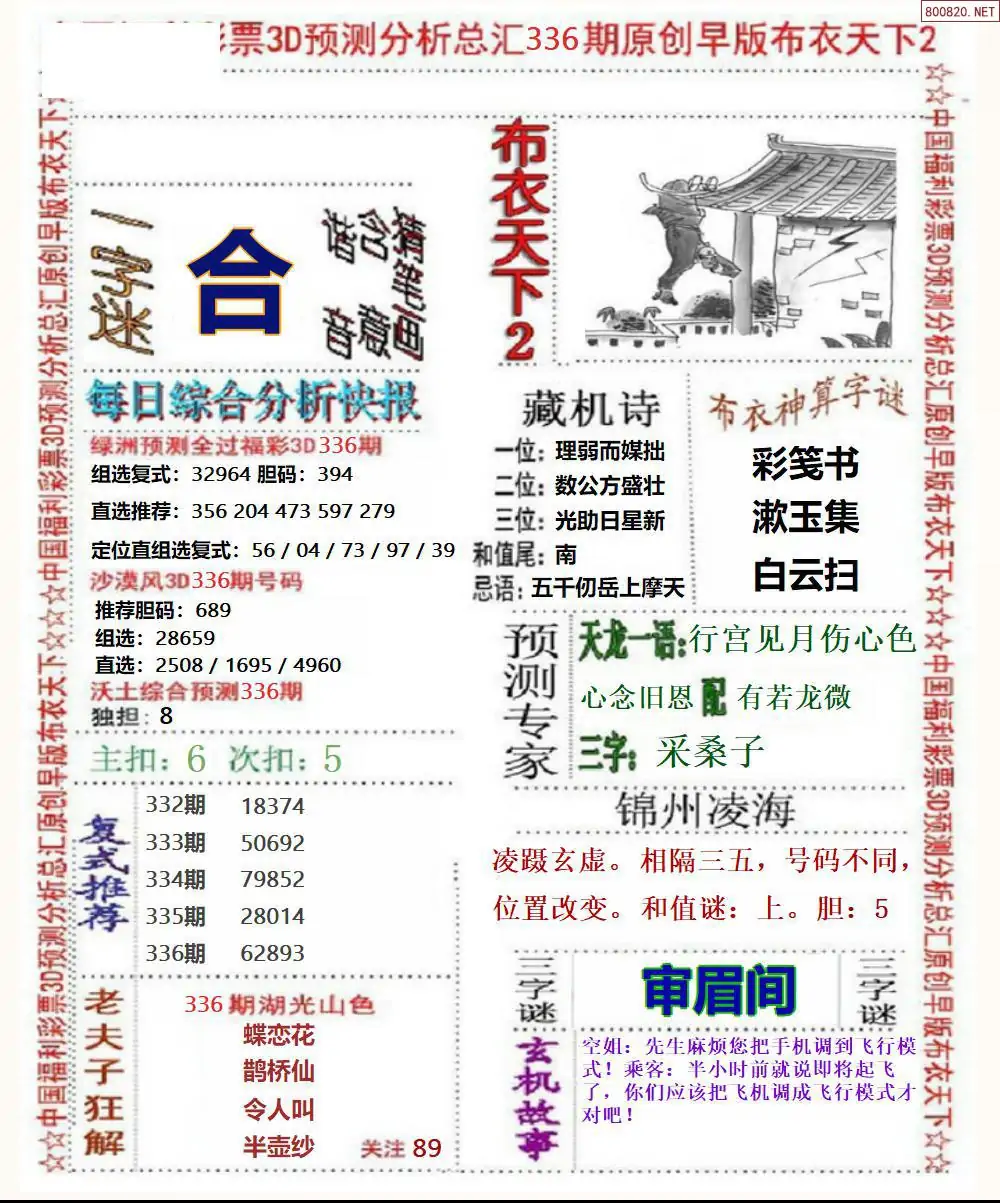 800820.NET
票3D预测分析总汇336期原创早版布衣天下2
☆☆中国福利彩票3D预测分析总汇原创早版布衣天下☆☆☆中国福利彩票3D预测分析总汇原创早版布衣天下☆☆
一字迷
合
布衣天下2
每日综合分析快报
绿洲预测全过福彩3D336期
组选复式：32964 胆码：394
直选推荐：356 204 473 597 279
定位直组选复式：56 / 04 / 73 / 97 / 39
沙漠风3D336期号码
推荐胆码：689
组选：28659
直选：2508 / 1695 / 4960
沃土综合预测336期
独担：8
主扣：6 次扣：5
复式推荐
332期 18374
333期 50692
334期 79852
335期 28014
336期 62893
老夫子狂解
336期湖光山色
蝶恋花
鹊桥仙
令人叫
半壶纱
关注 89
藏机诗
一位：理弱而媒拙
二位：数公方盛壮
三位：光助日星新
和值尾：南
忌语：五千仞岳上摩天
布衣神算字谜
彩笺书
漱玉集
白云扫
预测专家
天龙一语：行宫见月伤心色
心念旧恩 配 有若龙微
三字：采桑子
锦州凌海
凌蹑玄虚。相隔三五，号码不同，
位置改变。和值谜：上。胆：5
三字谜
审眉间
三字谜
玄机故事
空姐：先生麻烦您把手机调到飞行模
式！乘客：半小时前就说即将起飞
了，你们应该把飞机调成飞行模式才
对吧！
☆☆中国福利彩票3D预测分析总汇原创早版布衣天下☆☆☆中国福利彩票3D预测分析总汇原创早版布衣天下☆☆